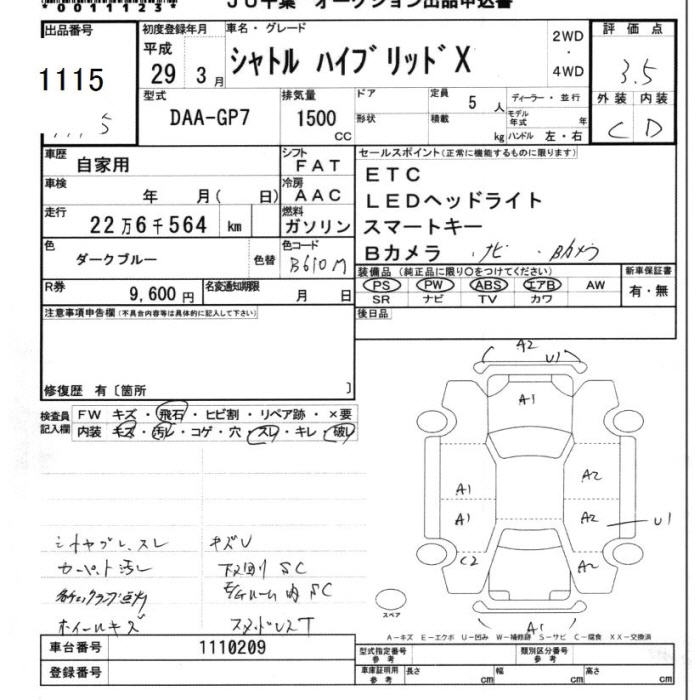 *0011123*
JU千葉 オークション出品申込書
出品番号
1115
1115
初度登録年月
平成
29 3 月
車名・グレード
シャトル ハイブリッドX
2WD
・
4WD
評価点
3.5
外装 内装
C D
型式
DAA-GP7
排気量
1500
CC
ドア
形状
定員
5 人
積載
kg
ディーラー・並行
モデル年式 年
ハンドル 左・右
車歴
自家用
シフト
FAT
車検
年 月( 日)
冷房
AAC
走行
22万6千564 km
燃料
ガソリン
色
ダークブルー
色替
色コード
B610M
R券
9,600 円
名変通知期限
月 日
セールスポイント(正常に機能するものに限ります)
ETC
LEDヘッドライト
スマートキー
Bカメラ ・ナビ ・Bカメラ
装備品(純正品に限り〇をつけてください)
PS PW ABS エアB AW
SR ナビ TV カワ
新車保証書
有・無
後日品
注意事項申告欄(不具合内容等は具体的に記入して下さい)
修復歴 有〔箇所 〕
検査員
記入欄
FW キズ・飛石・ヒビ割・リペア跡・×要
内装 キズ・汚レ・コゲ・穴・スレ・キレ・破レ
シートヤブレ、スレ キズU
カーペット汚レ 下廻り SC
ホイールキズ
A2
U1
A1
A1
A2
A1
A2
U1
C2
A2
A1
スペア
A－キズ E－エクボ U－凹み W－補修跡 S－サビ C－腐食 XX－交換済
車台番号
1110209
登録番号
型式指定番号
参考
類別区分番号
参考
車庫証明用
参考
長さ cm
幅 cm
高さ cm